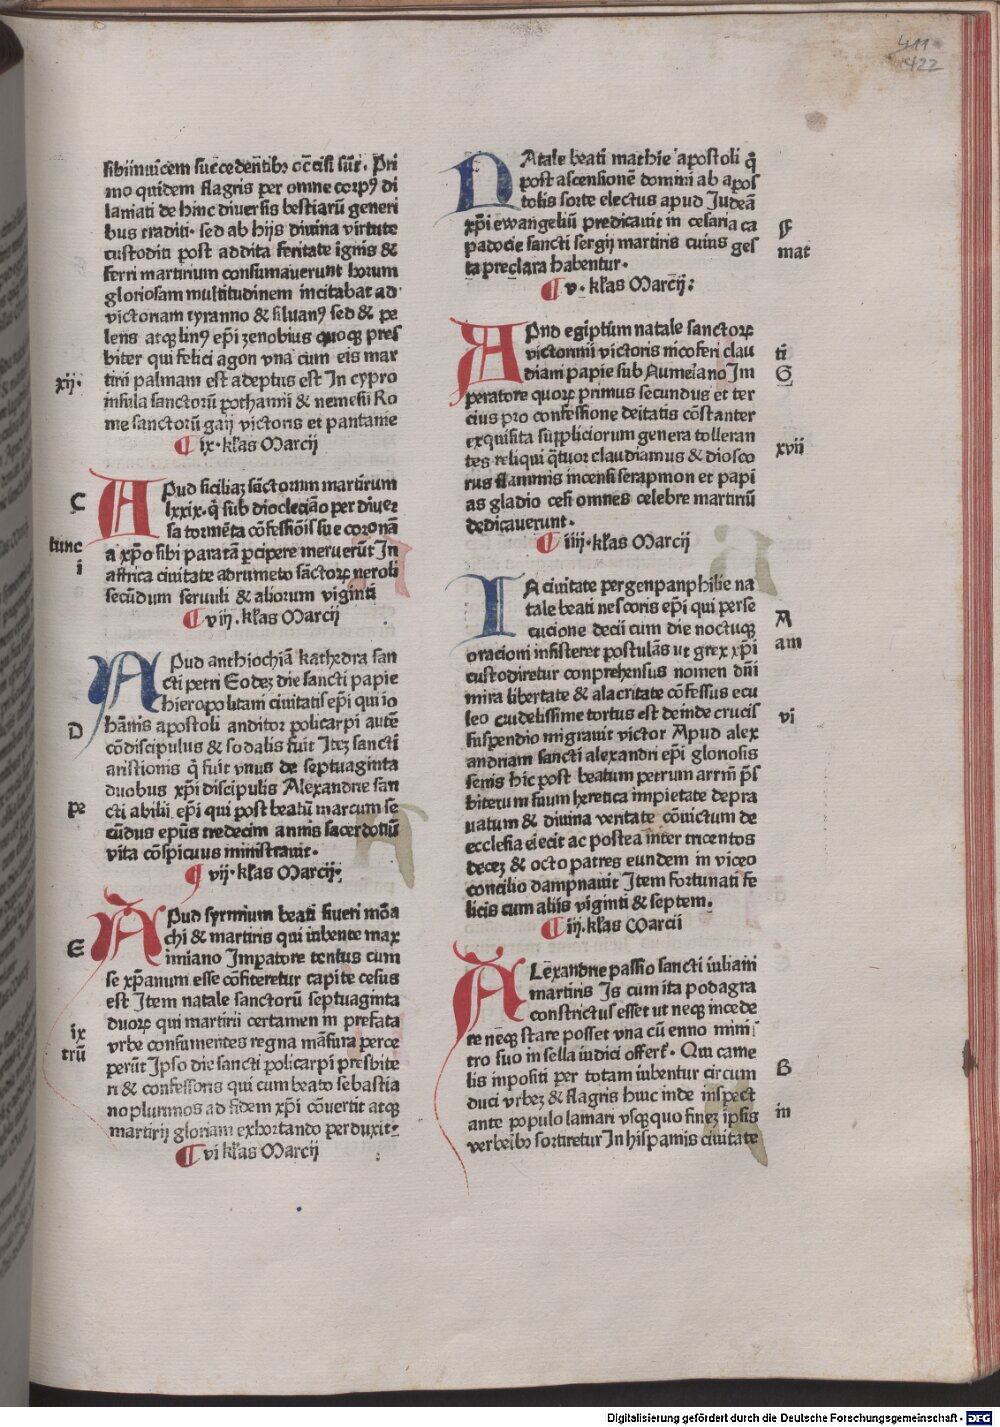 411
422
sibiinuicem succedentibꝫ occisi sūt. Pri
mo quidem flagris per omne corpꝰ di
laniati de hinc diuersis bestiarū generi
bus traditi. sed ab hijs diuina virtute
custoditi post addita feritate ignis &
ferri martirium consumauerunt horum
gloriosam multitudinem incitabat ad
victoriam tyranno & siluanꝰ sed & pe
leus atqꝫ linꝰ ep̄i zenobius quoqꝫ pres
biter qui felici agon vna cum eis mar
tirii palmam est adeptus est In cypro
xij.
insula sanctorū pothamii & nemesii Ro
me sanctorū gaij victoris et pantanie
¶ ix. kl̄as Marcij
C
APud siciliaꝫ sāctorum martirum
lxxix. q̄ sub diocleciāo per diuer
sa tormēta cōfessiōis sue coronā
tunc
a xp̄o sibi paratā ꝑcipere meruerūt In
i
affrica ciuitate adrumeto sāctoꝝ neroli
secūdum seruuli & aliorum viginti
¶ viij. kl̄as Marcij
APud anthiochiā kathedra san
cti petri Eodeꝫ die sancti papie
hieropolitani ciuitatis ep̄i qui io
D
hānis apostoli auditor policarpi autē
cōdiscipulus & sodalis fuit Iteꝫ sancti
aristionis q̄ fuit vnus de septuaginta
duobus xp̄i discipulis Alexandrie san
pe
cti abilii ep̄i qui post beatū marcum se
cūdus ep̄us tredecim annis sacerdotiū
vita cōspicuus ministrauit.
¶ vij. kl̄as Marcij.
APud syrmium beati siueri mōa
E
chi & martiris qui iubente max
imiano Imꝑatore tentus cum
se xp̄anum esse cōfiteretur capite cesus
est Item natale sanctorū septuaginta
duoꝝ qui martirii certamen in prefata
ix
vrbe consumentes regna māsura perce
trū
perūt Ipso die sancti policarpi presbite
ri & confessoris qui cum beato sebastia
no plurimos ad fidem xp̄i cōuertit atqꝫ
martirij gloriam exhortando perduxit.
¶ vi kl̄as Marcij
NAtale beati mathie apostoli q̄
post ascensionē domini ab apos
tolis sorte electus apud Iudeā
xp̄i ewangeliū predicauit in cesaria ca
F
padocie sancti sergij martiris cuius ges
mat
ta preclara habentur.
¶ v. kl̄as Marcij.
APud egiptum natale sanctoꝝ
victorini victoris nicoferi clau
ti
diani papie sub Numeriano Im
G
peratore quoꝝ primus secundus et ter
cius pro confessione deitatis cōstanter
exquisita suppliciorum genera tolleran
xvii
tes reliqui q̄tuor claudianus & diosco
rus flammis incensi serapmon et papi
as gladio cesi omnes celebre martiriū
dedicauerunt.
¶ iiij. kl̄as Marcij
IN ciuitate pergenpanphilie na
tale beati nestoris ep̄i qui perse
cucione decii cum die noctuqꝫ
A
oracioni insisteret postulās ut grex xp̄i
am
custodiretur conprehensus nomen dn̄i
mira libertate & alacritate cōfessus ecu
leo crudelissime tortus est deinde crucis
vi
suspendio migrauit victor Apud alex
andriam sancti alexandri ep̄i gloriosis
senis hic post beatum petrum arriū p̄s
biterum suum heretica impietate depra
uatum & diuina veritate cōuictum de
ecclesia eiecit ac postea inter tricentos
deceꝫ & octo patres eundem in viceo
concilio dampnauit Item fortunati fe
licis cum aliis viginti & septem.
¶ iij. kl̄as Marcii
ALexandrie passio sancti iuliani
martiris Is cum ita podagra
constrictus esset ut neqꝫ incede
re neqꝫ stare posset vna cū enno mini
tro suo in sella iudici offert̄. Qui came
B
lis inpositi per totam iubentur circum
duci vrbeꝫ & flagris huic inde inspect
in
ante populo laniari vsqꝫ quo fineꝫ ipsis
verberibꝫ sortiretur In hispaniis ciuitate
Digitalisierung gefördert durch die Deutsche Forschungsgemeinschaft - DFG